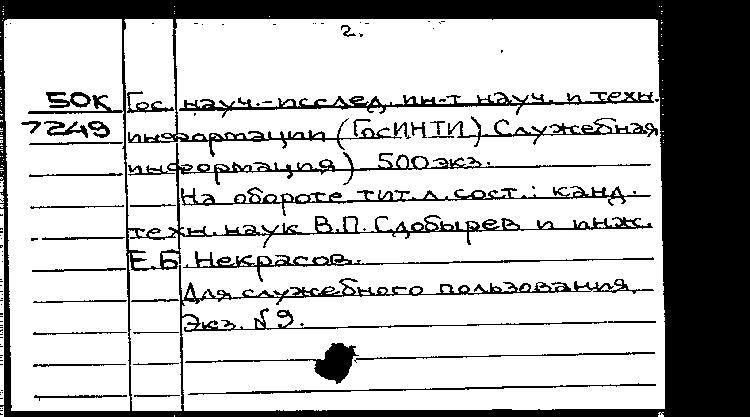 2.
50К Гос. науч.-исслед. ин-т науч. и техн.
7249 информации (ГосИНТИ) Служебная
информация) 500 экз.
На обороте тит. л. сост.: канд.
техн. наук В.П. Сдобырев и инж.
Е.Б. Некрасов.
Для служебного пользования.
Экз. N 9.